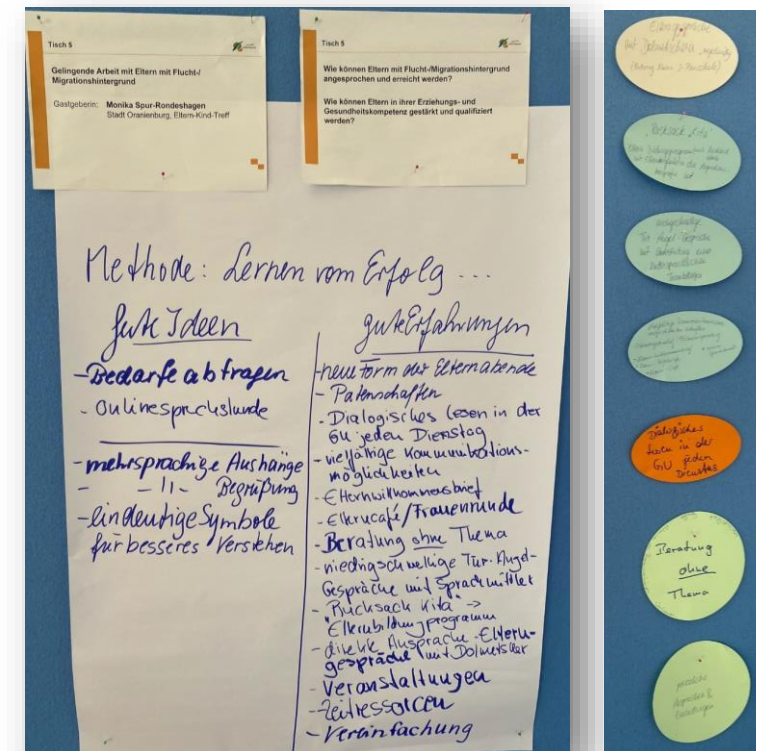 Tisch 5
Gelingende Arbeit mit Eltern mit Flucht-/
Migrationshintergrund
Gastgeberin: Monika Spur-Rondeshagen
Stadt Oranienburg, Eltern-Kind-Treff
Tisch 5
Wie können Eltern mit Flucht-/Migrationshintergrund
angesprochen und erreicht werden?
Wie können Eltern in ihrer Erziehungs- und
Gesundheitskompetenz gestärkt und qualifiziert
werden?
Methode: Lernen vom Erfolg ...
gute Ideen
- Bedarfe abfragen
- Onlinesprechstunde
- mehrsprachige Aushänge
- -11- Begrüßung
- eindeutige Symbole
für besseres Verstehen
gute Erfahrungen
- neue Form der Elternabende
- Patenschaften
- Dialogisches Lesen in der
GU jeden Dienstag
- vielfältige Kommunikations-
möglichkeiten
- Elternwillkommensbrief
- Elterncafé/Frauenrunde
- Beratung ohne Thema
- niedrigschwellige Tür-Angel-
Gespräche mit Sprachmittler
- "Rucksack Kita" ->
Elternbildungprogramm
- direkte Ansprache-Eltern-
gespräche mit Dolmetscher
- Veranstaltungen
- Zeitressorcen
- Vereinfachung
Elterngespräche
"Rucksack Kita"
Tür-Angel-Gespräche
Dialogisches
Lesen in der
GU jeden
Dienstag
Beratung
ohne
Thema
persönliche